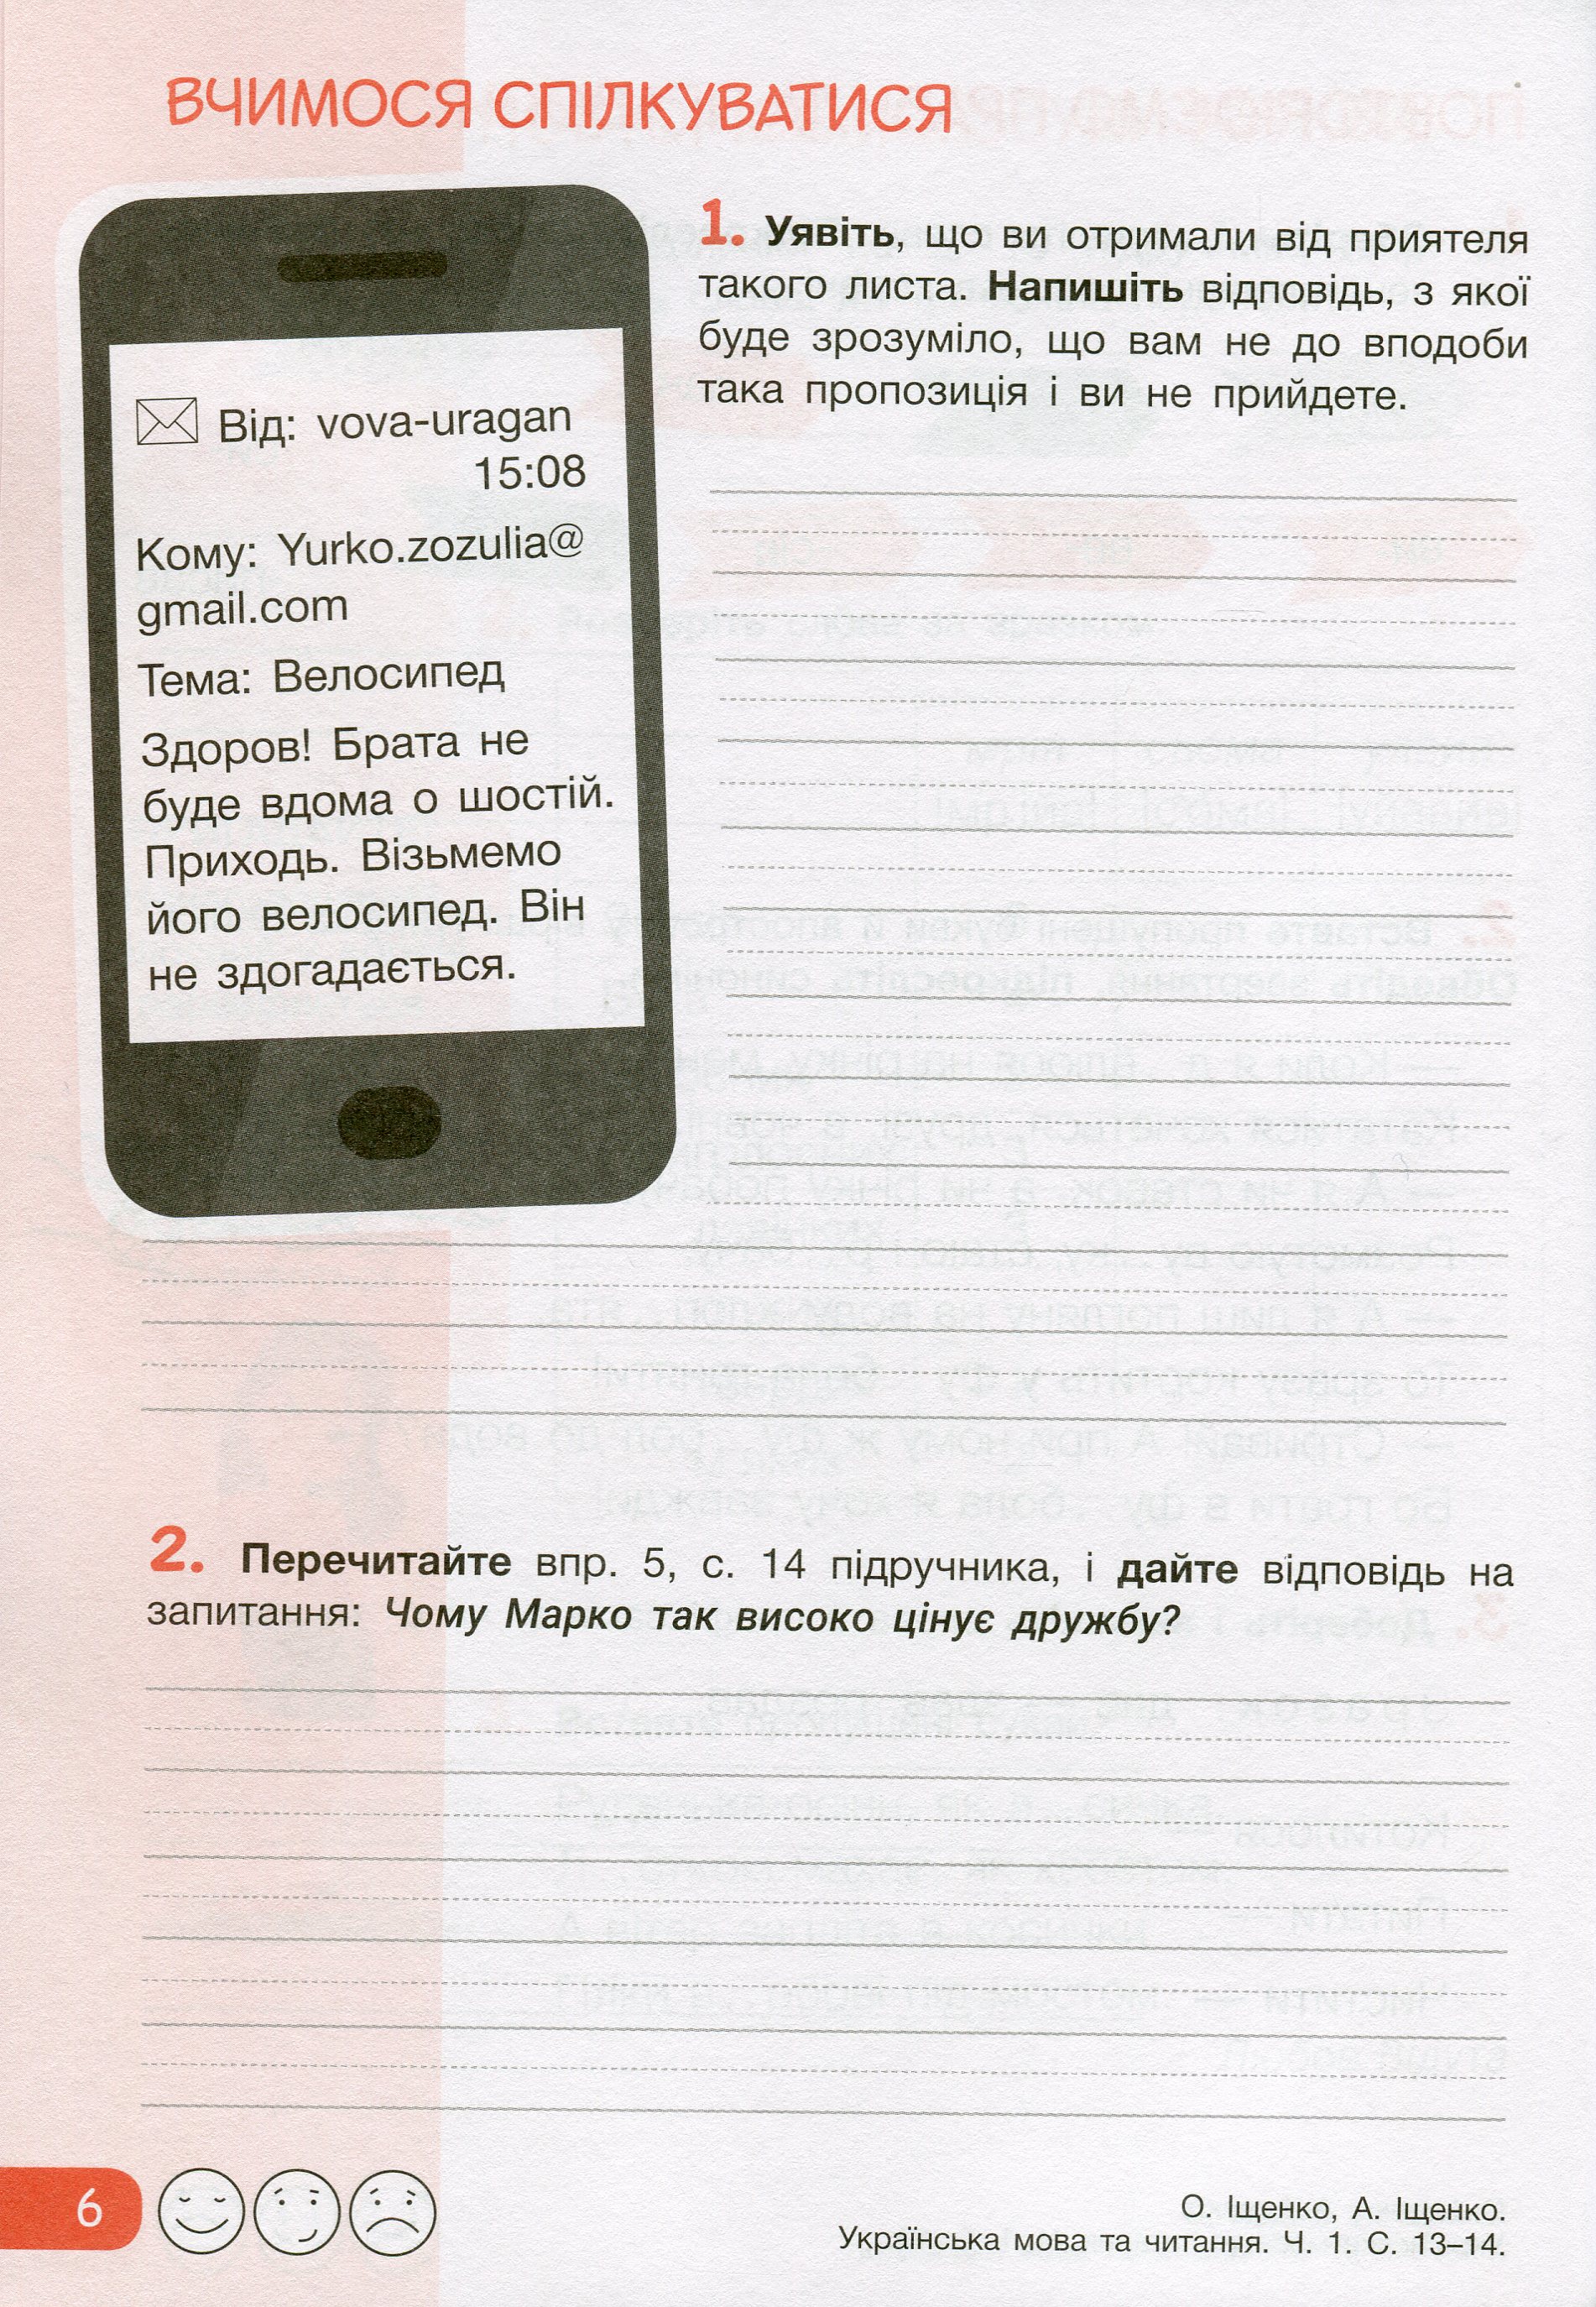 ВЧИМОСЯ СПІЛКУВАТИСЯ
Від: vova-uragan
15:08
Кому: Yurko.zozulia@
gmail.com
Тема: Велосипед
Здоров! Брата не
буде вдома о шостій.
Приходь. Візьмемо
його велосипед. Він
не здогадається.
1. Уявіть, що ви отримали від приятеля
такого листа. Напишіть відповідь, з якої
буде зрозуміло, що вам не до вподоби
така пропозиція і ви не прийдете.
2. Перечитайте впр. 5, с. 14 підручника, і дайте відповідь на
запитання: Чому Марко так високо цінує дружбу?
6
О. Іщенко, А. Іщенко.
Українська мова та читання. Ч. 1. С. 13–14.